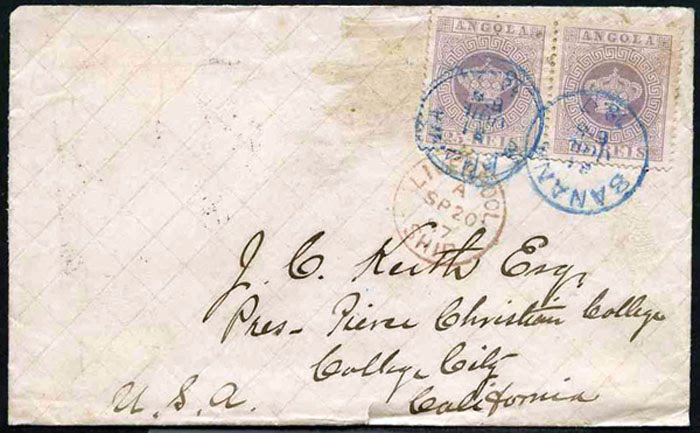 ANGOLA
ANGOLA
25 REIS
REIS
BANANA
LIVERPOOL
A
SP 20
SHIP
J. C. Keith Esq,
Pres- Pierce Christian College
College City
California
U. S. A.